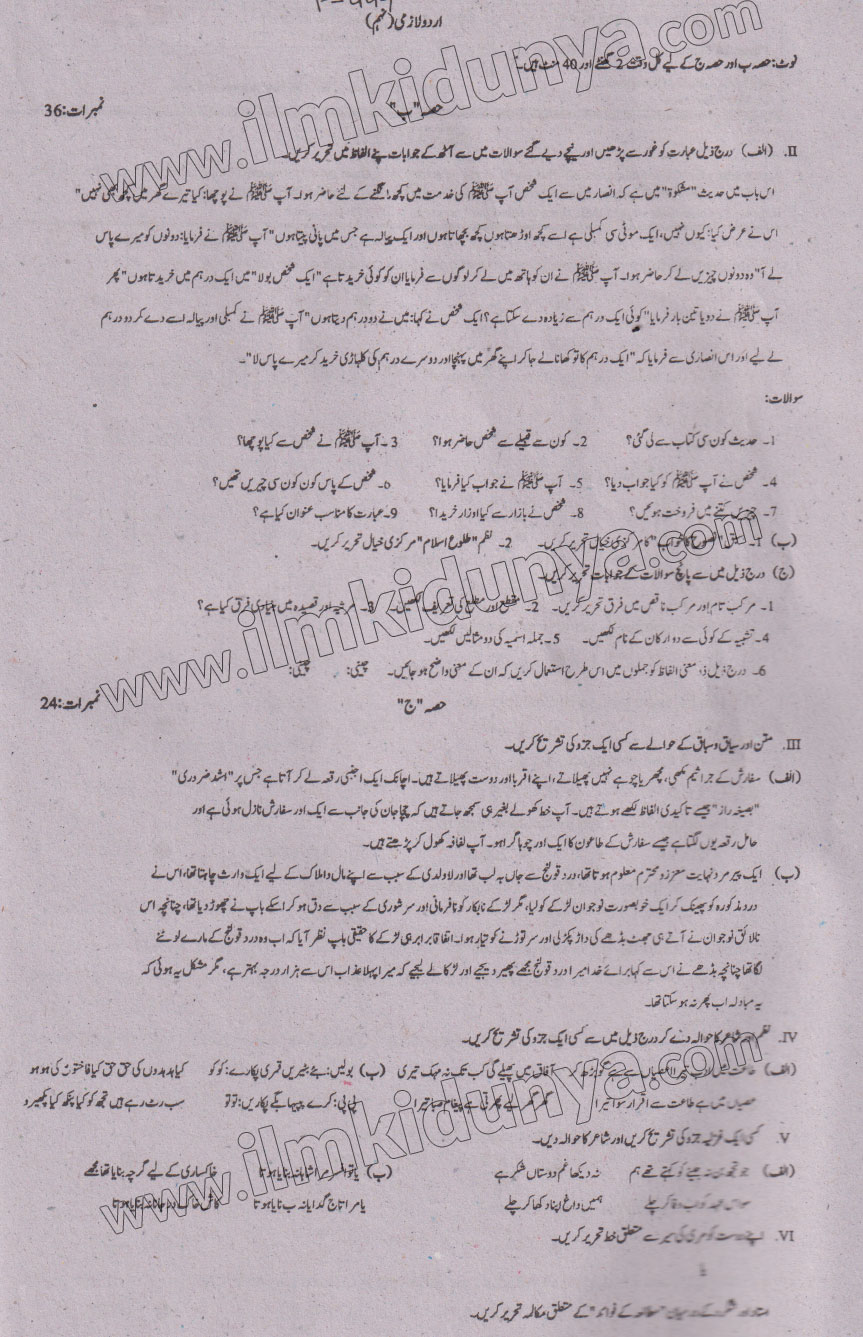 اردو لازمی (نہم)
نوٹ: حصہ ب اور حصہ ج کے لیے کل وقت 2 گھنٹے اور 40 منٹ ہیں۔
حصہ "ب" نمبرات: 36
II. (الف) درج ذیل عبارت کو غور سے پڑھیں اور نیچے دیے گئے سوالات میں سے آٹھ کے جوابات اپنے الفاظ میں تحریر کریں۔
اس باب میں حدیث "مشکوٰۃ" میں ہے کہ انصار میں سے ایک شخص آپ ﷺ کی خدمت میں کچھ مانگنے کے لئے حاضر ہوا۔ آپ ﷺ نے پوچھا: کیا تیرے گھر میں کچھ بھی نہیں"
اس نے عرض کیا: کیوں نہیں، ایک موٹی سی کمبلی ہے اسے کچھ اوڑھتا ہوں کچھ بچھاتا ہوں اور ایک پیالہ ہے جس میں پانی پیتا ہوں" آپ ﷺ نے فرمایا: دونوں کو میرے پاس
لے آ" وہ دونوں چیزیں لے کر حاضر ہوا۔ آپ ﷺ نے ان کو ہاتھ میں لے کر لوگوں سے فرمایا ان کو کوئی خریدتا ہے "ایک شخص بولا" میں ایک درہم میں خریدتا ہوں" پھر
آپ ﷺ نے دو یا تین بار فرمایا "کوئی ایک درہم سے زیادہ دے سکتا ہے؟ ایک شخص نے کہا: میں نے دو درہم دیتا ہوں" آپ ﷺ نے کمبلی اور پیالہ اسے دے کر دو درہم
لے لیے اور اس انصاری سے فرمایا کہ "ایک درہم کا تو کھانا لے جا کر اپنے گھر میں پہنچا اور دوسرے درہم کی کلہاڑی خرید کر میرے پاس لا"۔
سوالات:
1۔ حدیث کون سی کتاب سے لی گئی؟ 2۔ کون سے قبیلے سے شخص حاضر ہوا؟ 3۔ آپ ﷺ نے شخص سے کیا پوچھا؟
4۔ شخص نے آپ ﷺ کو کیا جواب دیا؟ 5۔ آپ ﷺ نے جواب کیا فرمایا؟ 6۔ شخص کے پاس کون کون سی چیزیں تھیں؟
7۔ چیزیں کتنے میں فروخت ہوئیں؟ 8۔ شخص نے بازار سے کیا اوزار خریدا؟ 9۔ عبارت کا مناسب عنوان کیا ہے؟
(ب) 1۔ "نصوح کا خواب" کا مرکزی خیال تحریر کریں۔ 2۔ نظم "طلوع اسلام" مرکزی خیال تحریر کریں۔
(ج) درج ذیل میں سے پانچ سوالات کے جوابات تحریر کریں۔
1۔ مرکب تام اور مرکب ناقص میں فرق تحریر کریں۔ 2۔ مقطع اور مطلع کی تعریف لکھیں۔ 3۔ مرثیہ اور قصیدہ میں بنیادی فرق کیا ہے؟
4۔ تشبیہ کے کوئی سے دو ارکان کے نام لکھیں۔ 5۔ جملہ اسمیہ کی دو مثالیں لکھیں۔
6۔ درج ذیل ذو معنی الفاظ کو جملوں میں اس طرح استعمال کریں کہ ان کے معنی واضح ہو جائیں۔ چینی: چینی:
حصہ "ج" نمبرات: 24
III. متن اور سیاق و سباق کے حوالے سے کسی ایک جزو کی تشریح کریں۔
(الف) سفارش کے جراثیم مکھی، مچھر یا چوہے نہیں پھیلاتے، اپنے اقربا اور دوست پھیلاتے ہیں۔ اچانک ایک اجنبی رقعہ لے کر آتا ہے جس پر "اشد ضروری"
"بصیغہ راز" جیسے تاکیدی الفاظ لکھے ہوتے ہیں۔ آپ خط کھولے بغیر ہی سمجھ جاتے ہیں کہ چچا جان کی جانب سے ایک اور سفارش نازل ہوئی ہے اور
حامل رقعہ یوں لگتا ہے جیسے سفارش کے طاعون کا ایک اور چوہا گرا ہو۔ آپ لفافہ کھول کر پڑھتے ہیں۔
(ب) ایک پیر مرد نہایت معزز و محترم معلوم ہوتا تھا، درد قولنج سے جاں بہ لب تھا اور لاولدی کے سبب سے اپنے مال و املاک کے لیے ایک وارث چاہتا تھا، اس نے
درد مذکورہ کو پھینک کر ایک خوبصورت نوجوان لڑکے کو لیا، مگر لڑکے نابکار کو نافرمانی اور سرشوری کے سبب سے دق ہو کر اسکے باپ نے چھوڑ دیا تھا، چنانچہ اس
نالائق نوجوان نے آتے ہی جھٹ بڈھے کی داڑھی پکڑ لی اور سر توڑنے کو تیار ہوا۔ اتفاقاً برابر ہی لڑکے کا حقیقی باپ نظر آیا کہ اب وہ درد قولنج کے مارے لوٹنے
لگا تھا چنانچہ بڈھے نے اس سے کہا برائے خدا میرا درد قولنج مجھے پھیر دیجیے اور لڑکا لے لیجیے کہ میرا پہلا عذاب اس سے ہزار درجہ بہتر ہے، مگر مشکل یہ ہوئی کہ
یہ مبادلہ اب پھر نہ ہو سکتا تھا۔
IV. نظم اور شاعر کا حوالہ دے کر درج ذیل میں سے کسی ایک جزو کی تشریح کریں۔
(الف) آفاق میں پھیلے گی کب تک نہ مہک تیری (ب) بولیں: بٹیریں قمری پکارے: کوکو کیا ہدہدوں کی حق حق کیا فاختوں کی ہو ہو
عصیاں میں ہے طاعت سے اقرار سوا تیرا گھر گھر لیے پھرتی ہے پیغام صبا تیرا پی پی: کرے پپیہا بگلے پکاریں: تو تو سب رٹ رہے ہیں تجھ کو کیا پنکھ کیا پکھیرو
V. کسی ایک غزلیہ جزو کی تشریح کریں اور شاعر کا حوالہ دیں۔
(الف) جو تجھ بن نہ جینے کو کہتے تھے ہم نہ دیکھا غم دوستاں شکر ہے (ب) یا تو افسر مرا شاہانہ بنایا ہوتا خاکساری کے لیے گرچہ بنایا تھا مجھے
سو اس عہد کو اب وفا کر چلے ہمیں داغ اپنا دکھا کر چلے یا مرا تاج گدایانہ بنایا ہوتا
VI. اپنے دوست کو مری کی سیر سے متعلق خط تحریر کریں۔
یا
کے فوائد" کے متعلق مکالمہ تحریر کریں۔